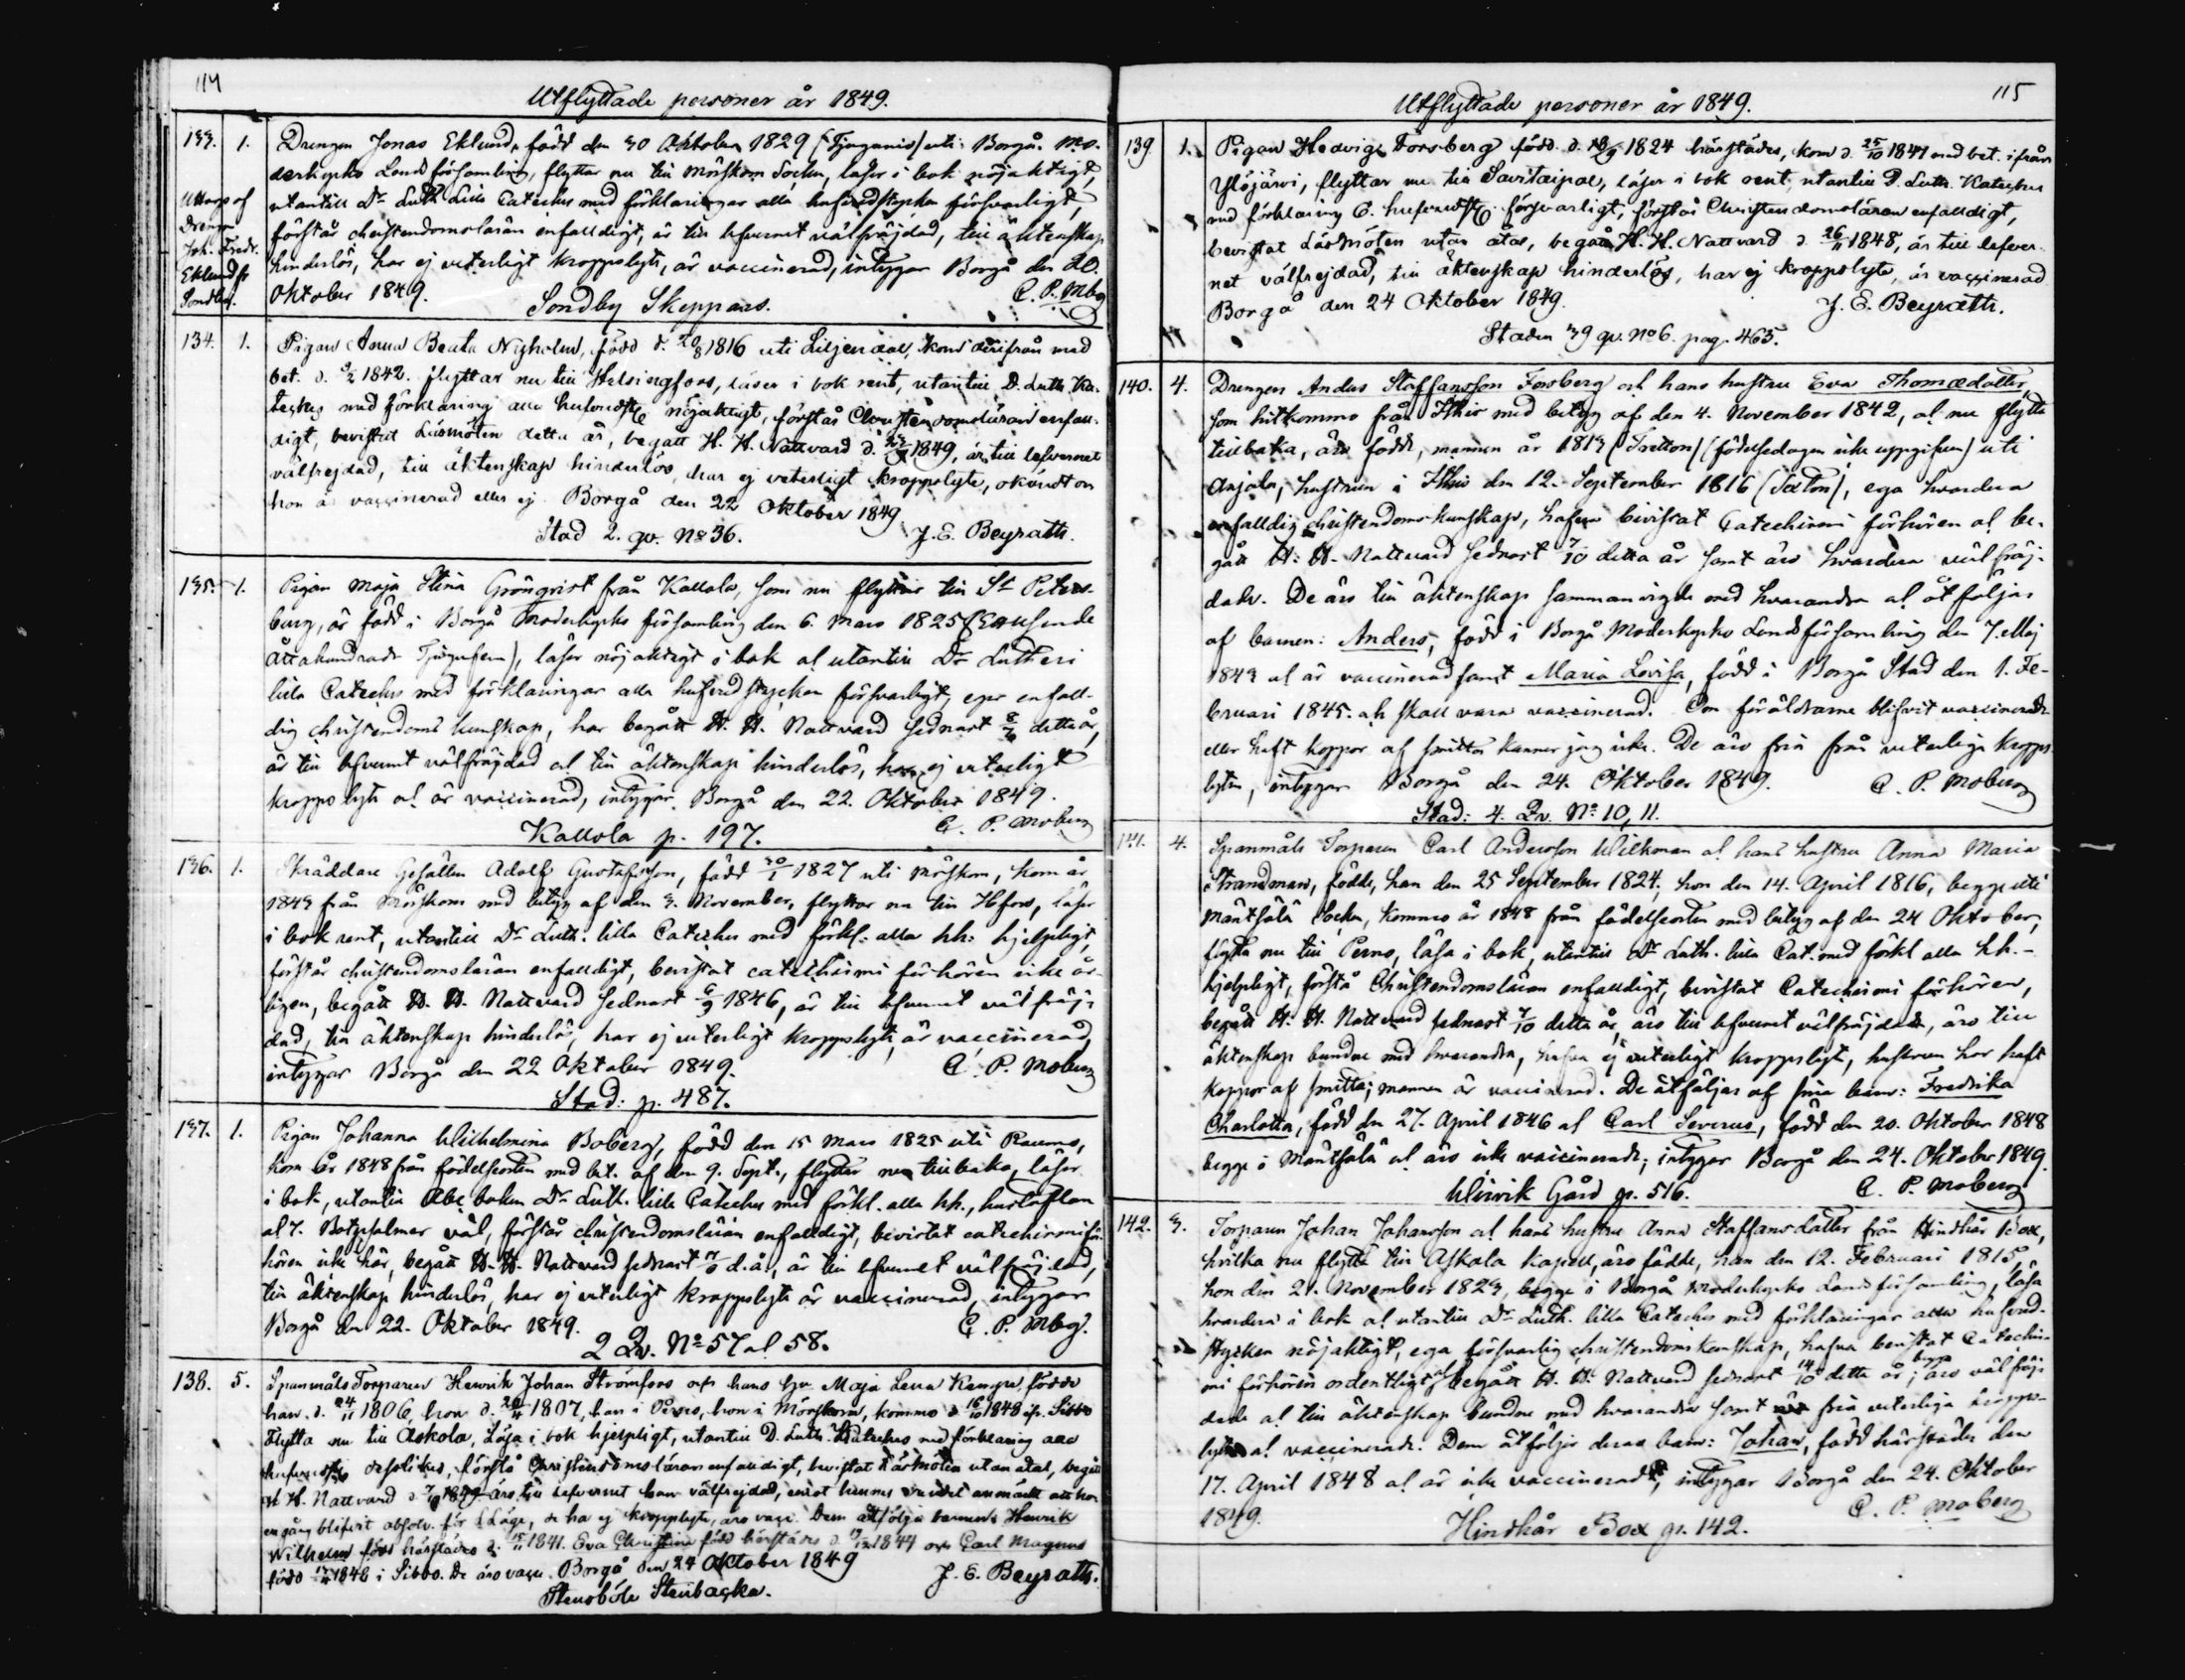 114
Utflyttade personer år 1849.
133. 1. Drengen Jonas Eklund, född den 30 Oktober 1829 (Tjuganio) uti Borgå Mo-
derkyrko Landsförsamling, flyttar nu till Mörskom Socken, läser i bok nöjaktigt,
utantill Dr Luth. Lilla Cateches med förklaringar alla hufvudstycken försvarligt,
förstår christendomsläran enfalldigt, är till lefvernet välfräjdad, till äktenskap
hinderlös, har ej veterligt kroppslyte, är vaccinerad, intygar Borgå den 20.
Oktober 1849. C. P. Mbg
Sondby Skeppars.
Drengen
Joh. Fredr.
Eklund
Sondby.
134. 1. Pigan Anna Beata Nyholm, född d. 20/8 1816 uti Liljendal, kom därifrån med
bet. d. 1842. flyttar nu till Helsingfors, läser i bok rent, utantill D. Luth. Ka-
teches med förklaring alla hufvudst. nöjaktigt, förstår Christendomsläran enfall-
digt, bevistat Läsmöten detta år, begått H. H. Nattvard d. 1849, är till lefvernet
välfrejdad, till äktenskap hinderlös, har ej veterligt kroppslyte, okändt om
hon är vaccinerad eller ej. Borgå den 22 Oktober 1849
Stad 2. qv. No 36. J. E. Beyrath.
135. 1. Pigan Maja Stina Grönqvist från Kallola, som nu flyttar till St Peters-
burg, är född i Borgå Moderkyrko församling den 6. Mars 1825 (Ettusende
Åttahundrade Tjugufem), läser nöjaktigt i bok och utantill Dr Lutheri
lilla Cateches med förklaringar alla hufvudstycken försvarligt, eger enfall-
dig christendoms kunskap, har begått H. H. Nattvard sednast detta år,
är till lefvernet välfräjdad och till äktenskap hinderlös, har ej veterligt
kroppslyte och är vaccinerad, intygar Borgå den 22. Oktober 1849.
Kallola p. 197. C. P. Moberg
136. 1. Skräddare Gesällen Adolf Gustafsson, född 30/1 1827 uti Mörskom, kom år
1843 från Mörskom med betyg af den 3. November, flyttar nu till Hfors, läser
i bok rent, utantill Dr Luth. lilla Cateches med förkl. alla hh. hjelpligt,
förstår christendomsläran enfalldigt, bevistat catechismi förhören icke år-
ligen, begått H. H. Nattvard sednast 6/9 1846, är till lefvernet välfräj-
dad, till äktenskap hinderlös, har ej veterligt kroppslyte, är vaccinerad,
intygar Borgå den 22 Oktober 1849. C. P. Moberg
Stad: p. 487.
137. 1. Pigan Johanna Wilhelmina Boberg, född den 15 Mars 1825 uti Raumo,
kom år 1848 från födelseorten med bet. af den 9. Sept., flyttar nu tillbaka, läser
i bok, utantill Abc boken Dr Luth. lilla Cateches med förkl. alla hh., hustaflan
och 7. Botpsalmer väl, förstår christendomsläran enfalldigt, bevistat catechismiför-
hören icke här, begått H. H. Nattvard sednast 7/10 d. å., är till lefvernet välfräjdad,
till äktenskap hinderlös, har ej veterligt kroppslyte är vaccinerad, intygar
Borgå den 22. Oktober 1849. C. P. Mbg.
2 Qv. No 57 och 58.
138. 5. Spanmåls Torparen Henrik Johan Strömfors och hans hu. Maja Lena födde
han d. 24/11 1806, hon d. 1807, han i hon i Mörskom, kommo d. 16/10 1848 ifr. Sibbo
Flytta nu till Askola, Läsa i bok hjelpligt, utantill D. Luth. Kateches med förklaring alla
förstå Christendomsläran enfalldigt, bevistat Läsmöten utan åtal, begått
H. H. Nattvard d. 7/10 1849. äro till lefvernet han välfrejdad,
en gång blifvit absolv. för ha ej kroppslyte, äro vacc. Dem åtfölja barnen Henrik
Wilhelm född härstädes d. 1841. Eva Christina född härstädes d. 1844 och Carl Magnus
född 1848 i Sibbo. De äro vacc. Borgå den 24 Oktober 1849
Stensböle Stenbacka. J. E. Beyrath.
115
Utflyttade personer år 1849.
139 1. Pigan Hedvig Forsberg född d. 1824 härstädes, kom d. 25/10 1847 med bet. ifrån
Ylöjärvi, flyttar nu till Savitaipal, läser i bok rent, utantill D. Luth. Kateches
med förklaring försvarligt, förstår Christendomsläran enfalldigt,
bevistat Läsmöten utan åtal, begått H. H. Nattvard d. 26/11 1848, är till lefver-
net välfrejdad, till äktenskap hinderlös, har ej kroppslyte, är vaccinerad
Borgå den 24 Oktober 1849. J. E. Beyrath.
Staden 3 qv. No 6. pag. 465.
140. 4. Drengen Anders Staffansson Forsberg och hans hustru Eva Thomædotter,
som hitkommo från Itthis med betyg af den 4. November 1842, och nu flytta
tillbaka, äro födde, mannen år 1813 (Tretton) (födelsedagen icke uppgifven) uti
Anjala, hustrun i Itthis den 12. September 1816 (Sexton), ega hvardera
enfalldig christendoms kunskap, hafva bevistat Catechismi förhören och be-
gått H. H. Nattvard sednast 7/10 detta år samt äro hvardera välfräj-
dade. De äro till äktenskap sammanvigde med hvarandra och åtföljas
af barnen: Anders, född i Borgå Moderkyrko Landsförsamling den 7. Maj
1843 och är vaccinerad samt Maria Lovisa, född i Borgå Stad den 1. Fe-
bruari 1845. och skall vara vaccinerad. Om föräldrarne blifvit vaccinerade
eller haft koppor af smitta känner jag icke. De äro fria från veterliga kropps-
lyten, intygar Borgå den 24. Oktober 1849. C. P. Moberg
Stad: 4. Qv. No 10, 11.
141. 4. Spanmåls Torparen Carl Andersson Wilkman och hans hustru Anna Maria
Strandman, födde, han den 25 September 1824, hon den 14. April 1816, begge uti
Mäntsälä Socken, kommo år 1848 från födelseorten med betyg af den 24 Oktober,
flytta nu till Perno, läsa i bok, utantill Dr Luth. lilla Cat. med förkl alla hh.-
hjelpligt, förstå Christendomsläran enfalldigt, bevistat Catechismi förhören,
begått H. H. Nattvard sednast 7/10 detta år, äro till lefvernet välfräjdade, äro till
äktenskap bundne med hvarandra, hafva ej veterligt kroppslyte, hustrun har haft
koppor af smitta; mannen är vaccinerad. De åtföljas af sina barn: Fredrika
Charlotta, född den 27. April 1846 och Carl Severus, född den 20. Oktober 1848
begge i Mäntsälä och äro icke vaccinerade; intygar Borgå den 24. Oktober 1849.
Wirvik Gård p. 516. C. P. Moberg
142. 3. Torparen Johan Johansson och hans hustru Anna Staffansdotter från Hindhår Box,
hvilka nu flytta till Askola Kapell, äro födde, han den 12. Februari 1815,
hon den 21. November 1823, begge i Borgå Moderkyrko Landsförsamling, läsa
hvardera i bok och utantill Dr Luth. lilla Cateches med förklaringar alla hufvud-
stycken nöjaktigt, ega försvarlig christendomskunskap, hafva bevistat Catechis-
mi förhören ordentligt och begått H. H. Nattvard sednast 14/10 detta år; begge äro välfräj-
dade och till äktenskap bundne med hvarandra samt fria veterliga kropps-
lyten och vaccinerade. Dem åtföljer deras barn: Johan, född härstädes den
17. April 1848 och är icke vaccinerad, intygar Borgå den 24. Oktober
1849. C. P. Moberg
Hindhår Box p. 142.